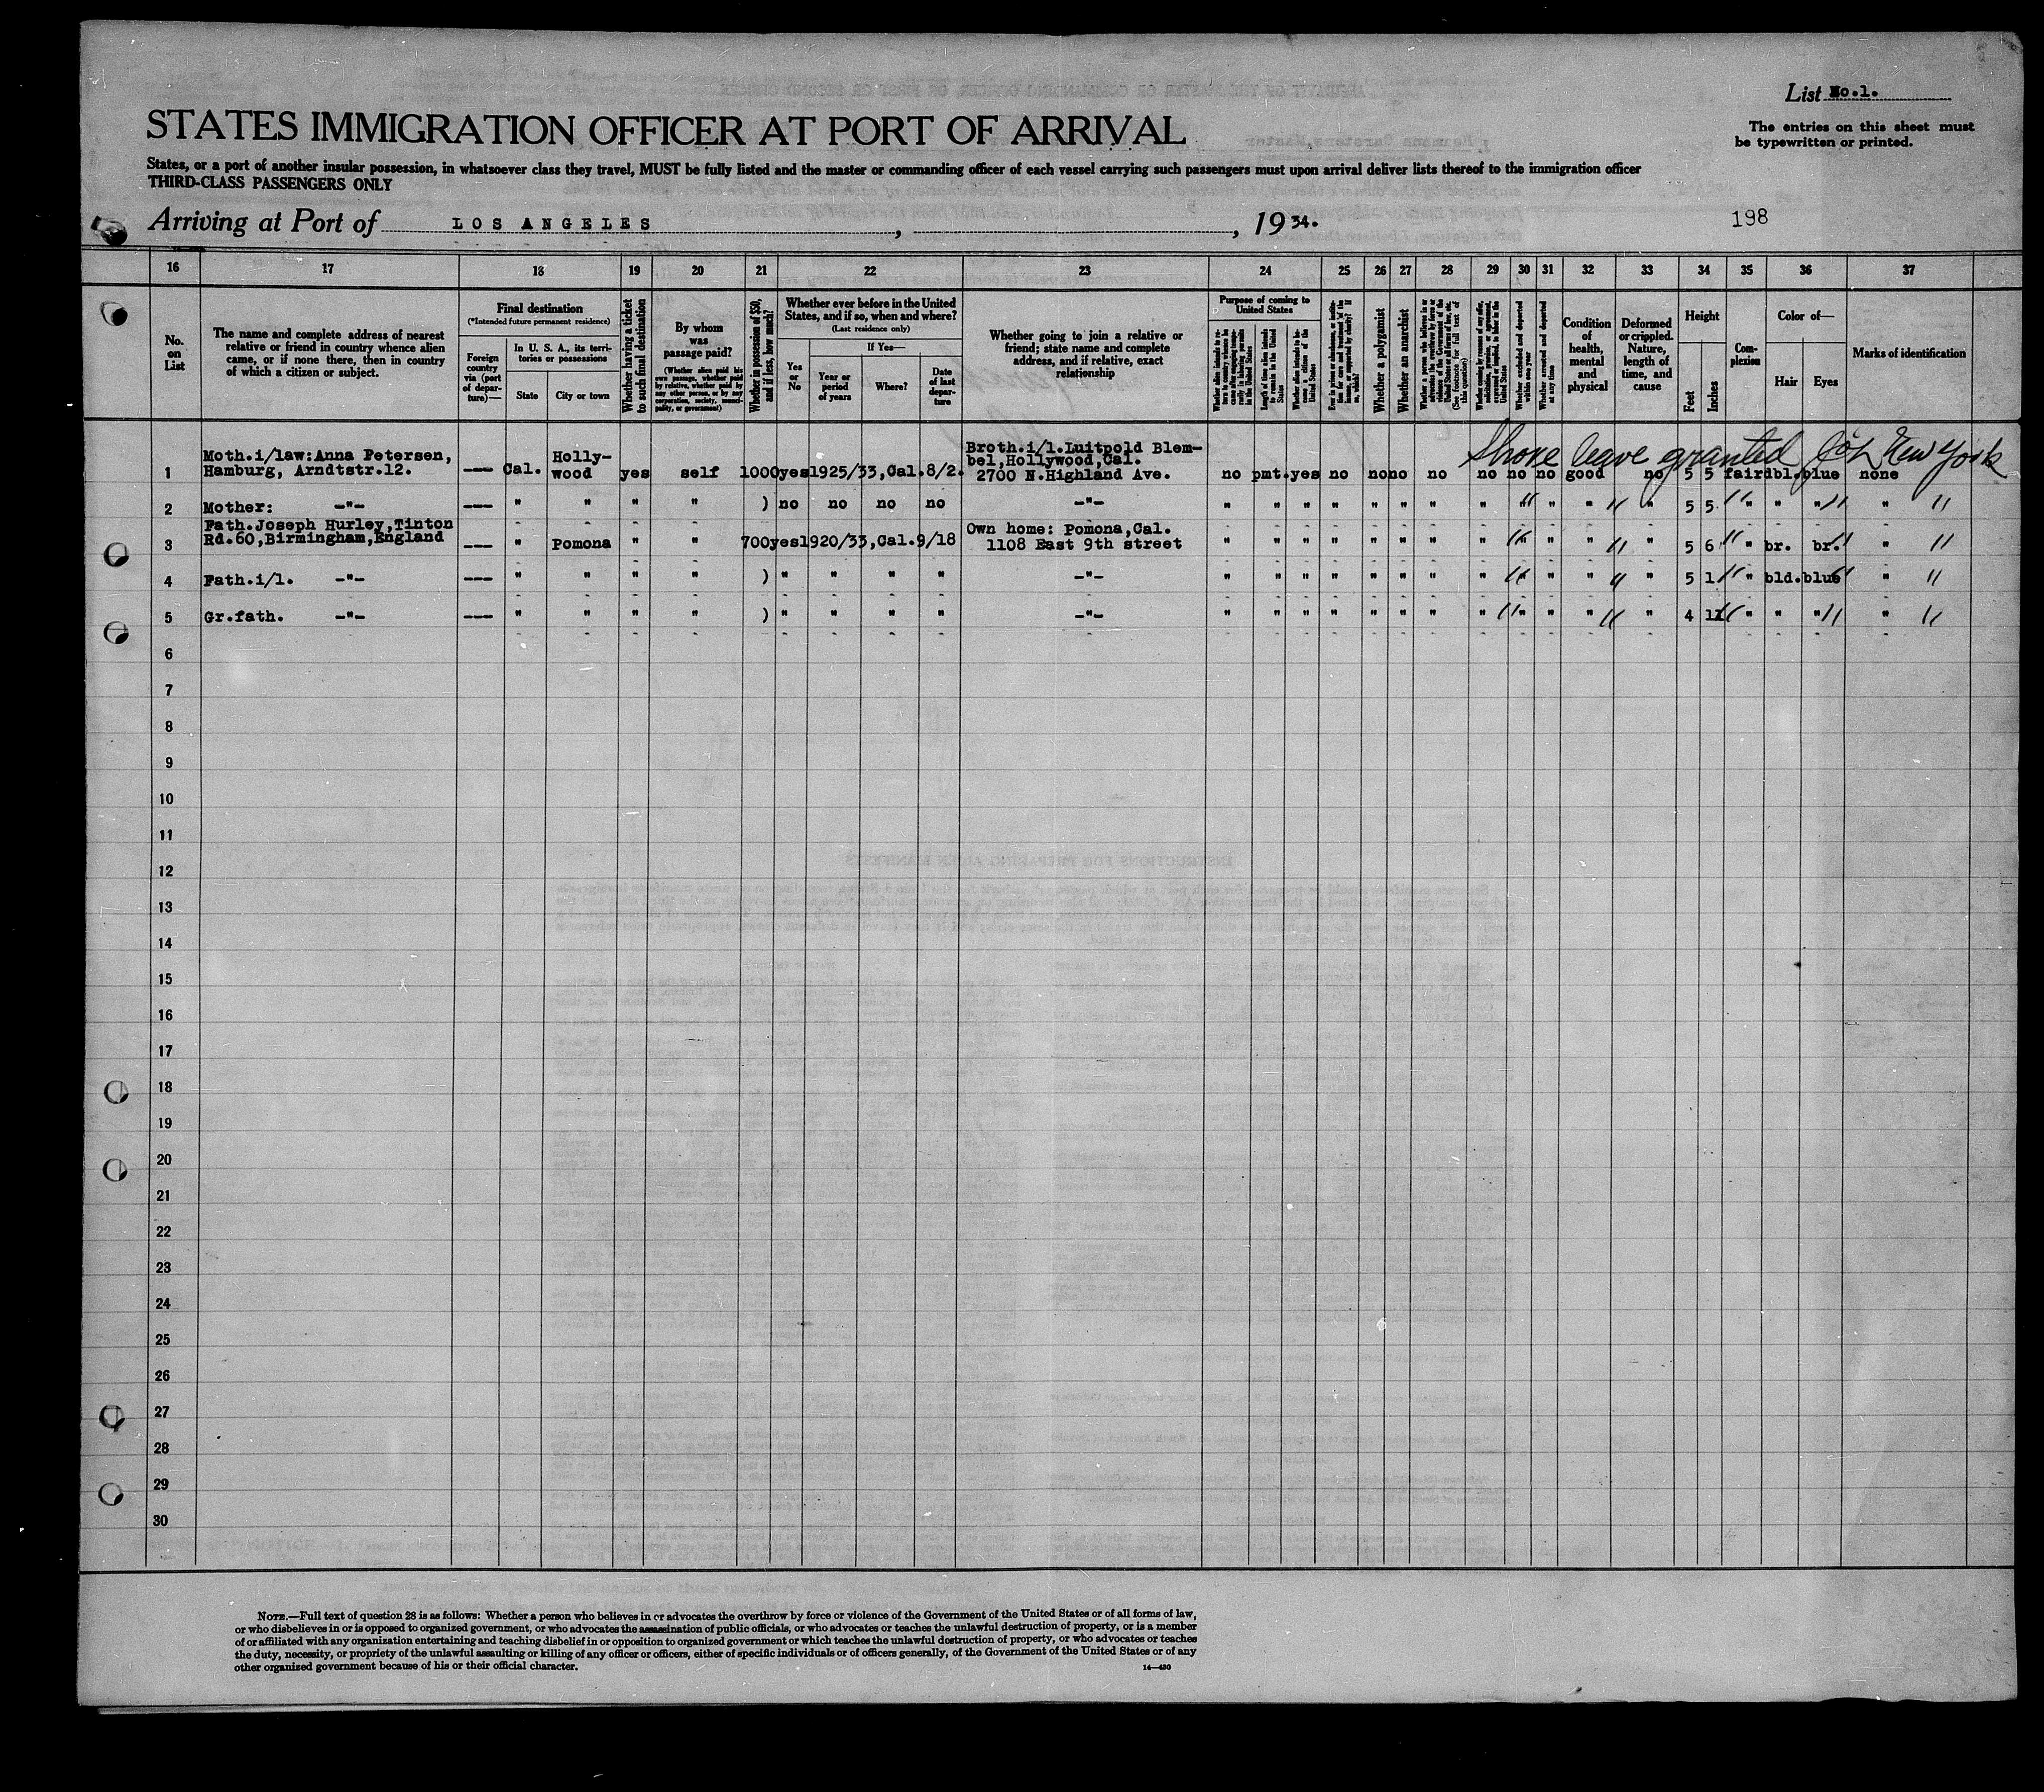 List No.1.
STATES IMMIGRATION OFFICER AT PORT OF ARRIVAL
The entries on this sheet must
be typewritten or printed.
States, or a port of another insular possession, in whatsoever class they travel, MUST be fully listed and the master or commanding officer of each vessel carrying such passengers must upon arrival deliver lists thereof to the immigration officer
THIRD-CLASS PASSENGERS ONLY
Arriving at Port of LOS ANGELES, , 19 34.
198
16 17 18 19 20 21 22 23 24 25 26 27 28 29 30 31 32 33 34 35 36 37
No.
on
List
The name and complete address of nearest
relative or friend in country whence alien
came, or if none there, then in country
of which a citizen or subject.
Final destination
(*Intended future permanent residence)
Foreign
country
via (port
of depar-
ture)—
In U. S. A., its terri-
tories or possessions
State
City or town
Whether having a ticket
to such final destination
By whom
was
passage paid?
(Whether alien paid his
own passage, whether paid
by relative, whether paid by
any other person, or by any
corporation, society, munici-
pality, or government)
Whether in possession of $50,
and if less, how much?
Whether ever before in the United
States, and if so, when and where?
(Last residence only)
Yes
or
No
If Yes—
Year or
period
of years
Where?
Date
of last
depar-
ture
Whether going to join a relative or
friend; state name and complete
address, and if relative, exact
relationship
Purpose of coming to
United States
Whether alien intends to re-
turn to country whence he
came after engaging tempo-
rarily in laboring pursuits
in the United States
Length of time alien intends
to remain in the United
States
Whether alien intends to be-
come a citizen of the
United States
Whether a polygamist
Whether an anarchist
(See footnote for full text of
this question)
Whether excluded and deported
within one year
Whether arrested and deported
at any time
Condition
of
health,
mental
and
physical
Deformed
or crippled.
Nature,
length of
time, and
cause
Height
Feet
Inches
Com-
plexion
Color of—
Hair
Eyes
Marks of identification
Shore leave granted New York
1 Moth.i/law:Anna Petersen,
Hamburg, Arndtstr.12. --- Cal. Holly-
wood yes self 1000 yes 1925/33,Cal. 8/2. Broth.i/l.Luitpold Blem-
bel,Hollywood,Cal.
2700 N.Highland Ave. no pmt. yes no no no no no no no good no 5 5 fair dbl. blue none
2 Mother: -"- --- " " " " ) no no no no -"- " " " " " " " " " " " " 5 5 " " " "
3 Fath.Joseph Hurley,Tinton
Rd.60,Birmingham,England --- " Pomona " " 700 yes 1920/33,Cal. 9/18 Own home: Pomona,Cal.
1108 East 9th street " " " " " " " " " " " " 5 6 " br. br. "
4 Fath.i/l. -"- --- " " " " ) " " " " -"- " " " " " " " " " " " " 5 1 " bld. blue "
5 Gr.fath. -"- --- " " " " ) " " " " -"- " " " " " " " " " " " " 4 11 " " " "
6
7
8
9
10
11
12
13
14
15
16
17
18
19
20
21
22
23
24
25
26
27
28
29
30
NOTE.—Full text of question 28 is as follows: Whether a person who believes in or advocates the overthrow by force or violence of the Government of the United States or of all forms of law,
or who disbelieves in or is opposed to organized government, or who advocates the assassination of public officials, or who advocates or teaches the unlawful destruction of property, or is a member
of or affiliated with any organization entertaining and teaching disbelief in or opposition to organized government or which teaches the unlawful destruction of property, or who advocates or teaches
the duty, necessity, or propriety of the unlawful assaulting or killing of any officer or officers, either of specific individuals or of officers generally, of the Government of the United States or of any
other organized government because of his or their official character.
14—430